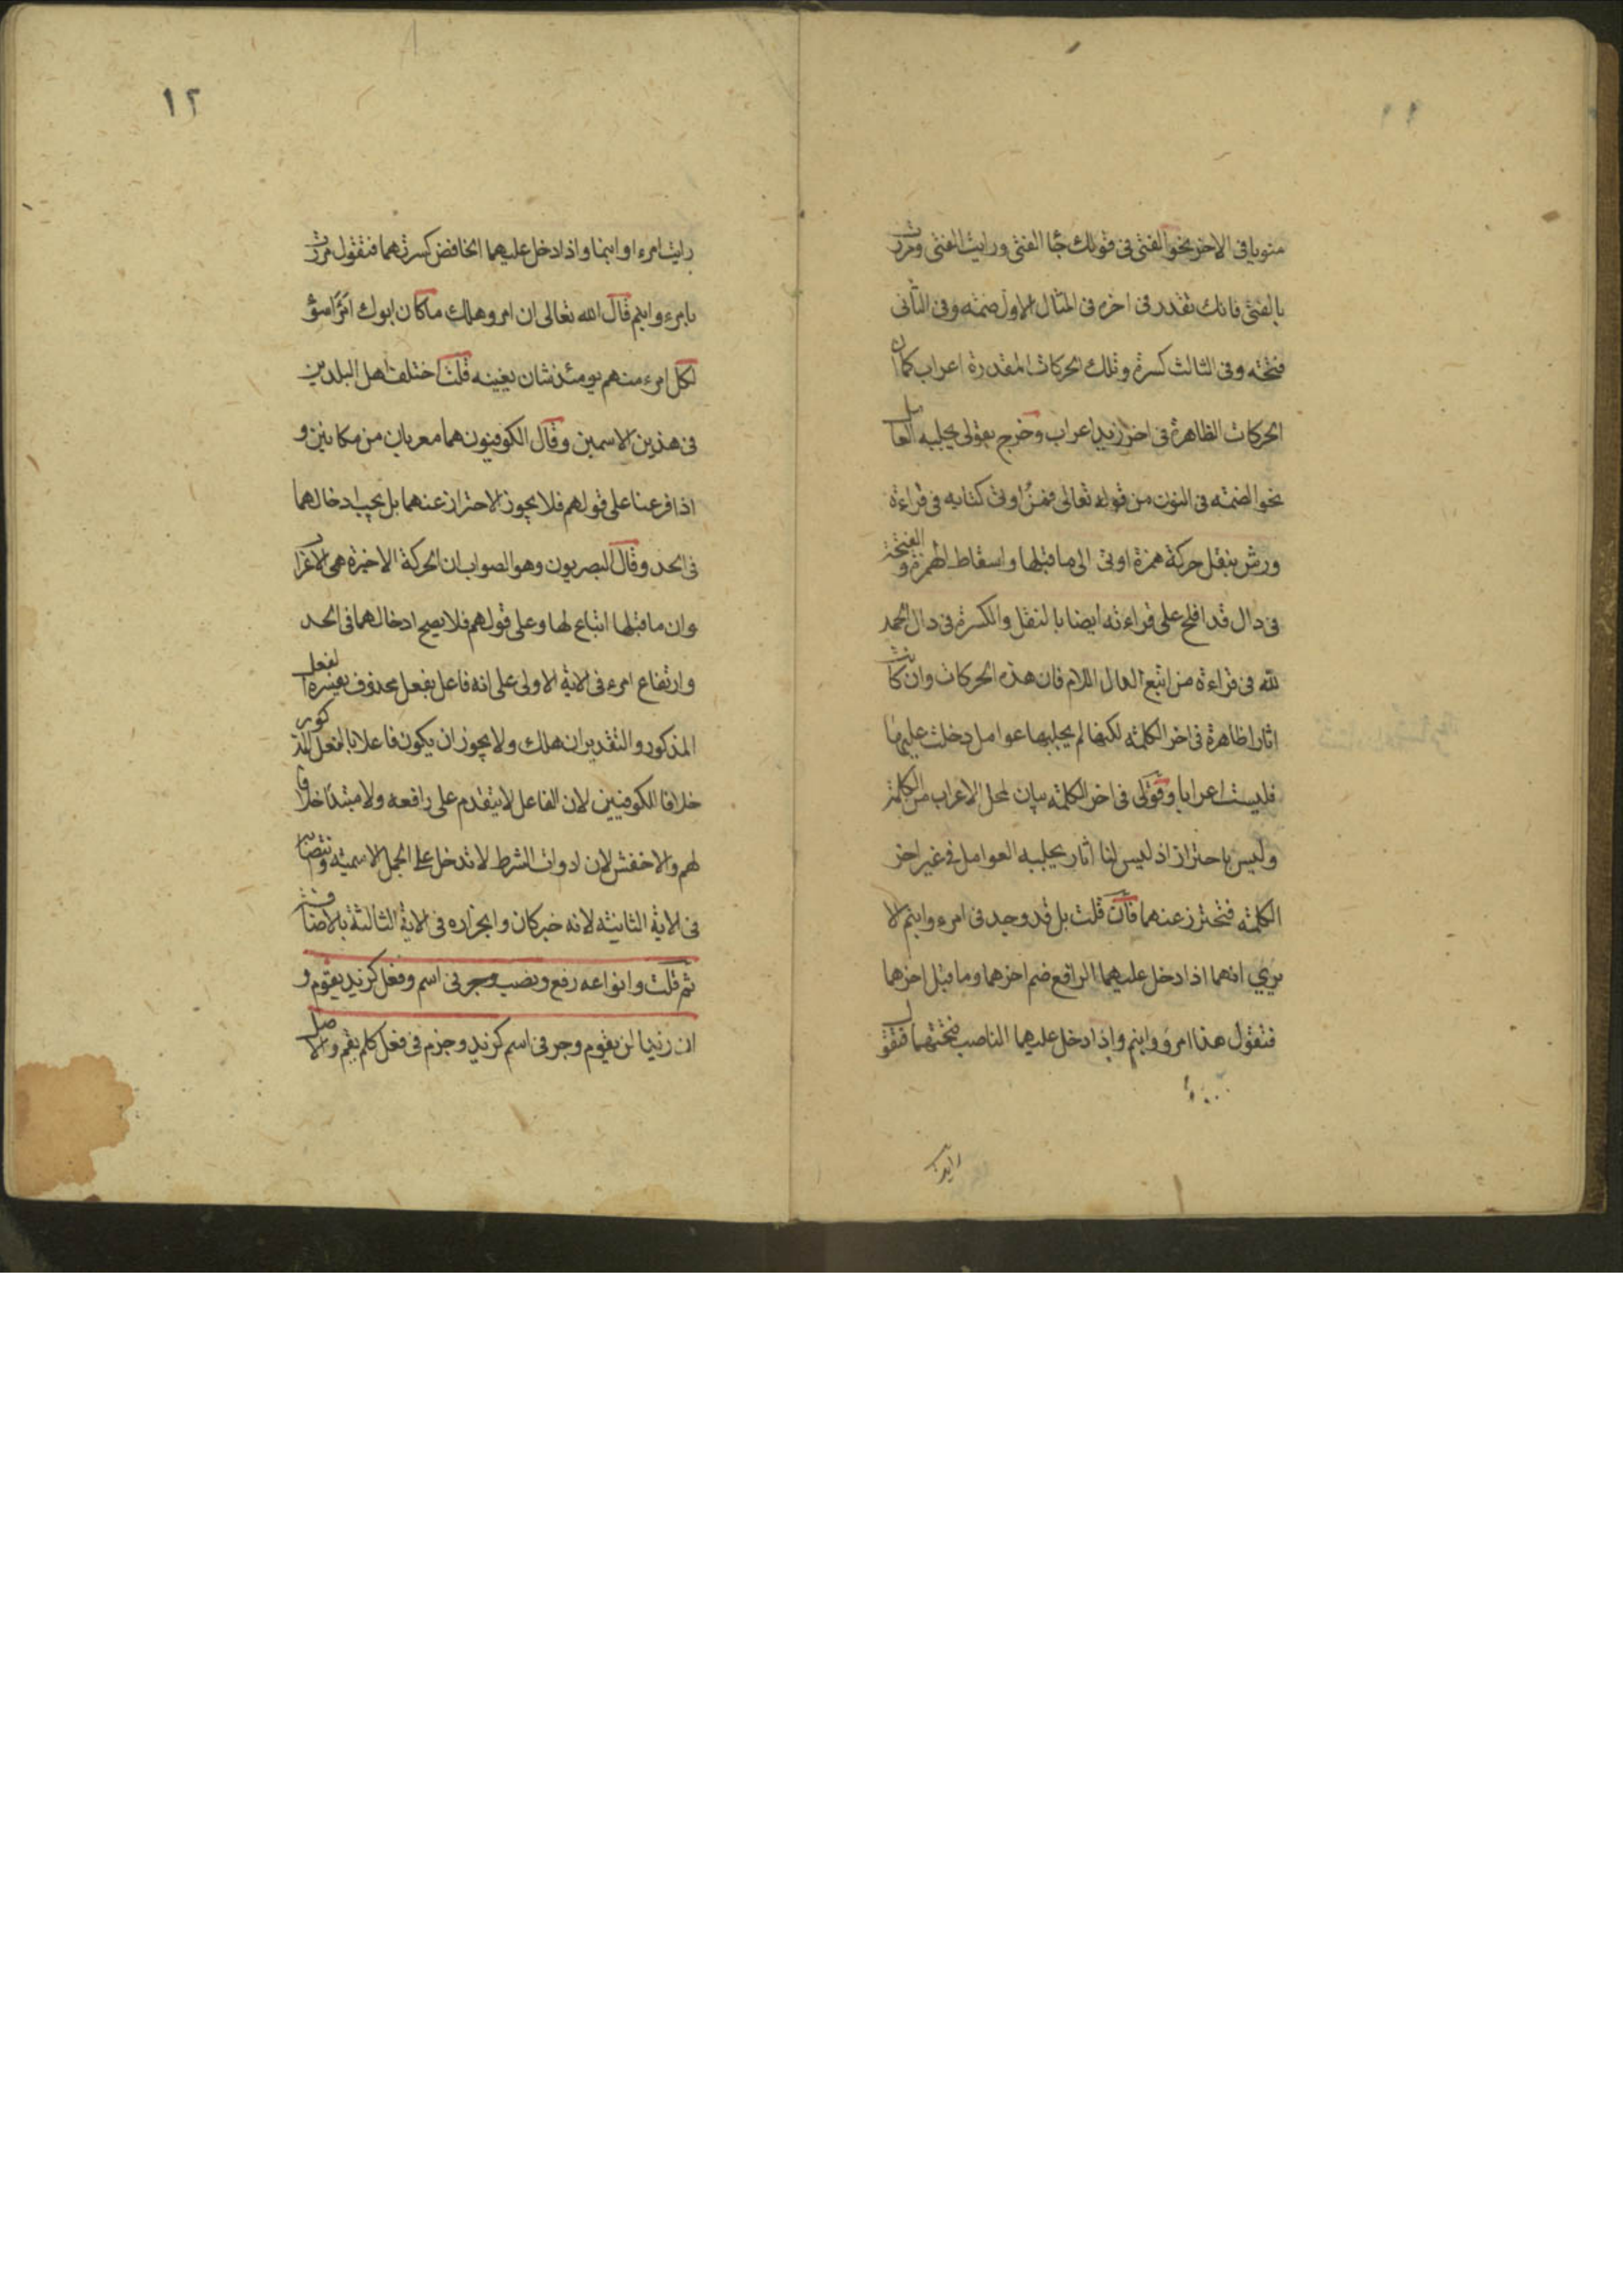 ١١
منويا في الاخر نحو الفتى في قولك جا الفتى ورايت الفتى ومررت
بالفتى فانك تقدر في اخره في المثال الاول ضمة وفي الثاني
فتحة وفي الثالث كسرة وتلك الحركات المقدرة اعراب كما ان
الحركات الظاهرة في اخر زيد اعراب وخرج بقولي يجلبه العامل
نحو الضمة في النون من قوله تعالى فمنُ اوتي كتابه في قراءة
ورش بنقل حركة همزة اوتي الى ما قبلها واسقاط الهمزة والفتحة
في دال قد افلح على قراءته ايضا بالنقل والكسرة في دال الحمد
لله في قراءة من اتبع الدال اللام فان هذه الحركات وان كانت
اثارا ظاهرة في اخر الكلمة لكنها لم يجلبها عوامل دخلت عليها
فليست اعرابا وقولي في اخر الكلمة بيان لمحل الاعراب من الكلمة
وليس باحتراز اذ ليس لنا اثار يجلبه العوامل في غير اخر
الكلمة فتحترز عنهما فان قلت بل قد وجد في امرء وابنم الا
تري انهما اذا دخل عليهما الرافع ضم اخرهما وما قبل اخرهما
فتقول هذا امرؤ وابنم واذا دخل عليهما الناصب فتحتهما فتقول
رايت
١٢
رايت امرءا وابنما واذا دخل عليهما الخافض كسرتهما فتقول مررت
بامرء وابنم قال الله تعالى ان امرو هلك ما كان ابوك امرَا سوْ
لكل امرء منهم يومئذ شان يغينه قلت اختلف اهل البلدين
في هذين الاسمين وقال الكوفيون هما معربان من مكانين و
اذا فرعنا على قولهم فلا يجوز الاحتراز عنهما بل يجب ادخالهما
في الحد وقال البصريون وهو الصواب ان الحركة الاخيرة هي الاعراب
وان ما قبلها اتباع لها وعلى قولهم فلا يصح ادخالهما في الحد
وارتفاع امرء في الاية الاولى على انه فاعل بفعل محذوف يفسره الفعل
المذكور والتقدير ان هلك ولا يجوز ان يكون فاعلا بالفعل المذكور
خلافا للكوفيين لان الفاعل لا يتقدم على رافعه ولا مبتدا خلافا
لهم والاخفش لان ادوات الشرط لا تدخل على الجمل الاسمية وانتصابه
في الاية الثانية لانه خبر كان وانجراره في الاية الثالثة بالاضافة
ثم قلت وانواعه رفع ونصب وجر في اسم وفعل كزيد يقوم و
ان زيدا لن يقوم وجر في اسم كزيد وجزم في فعل كلم يقم والاصل